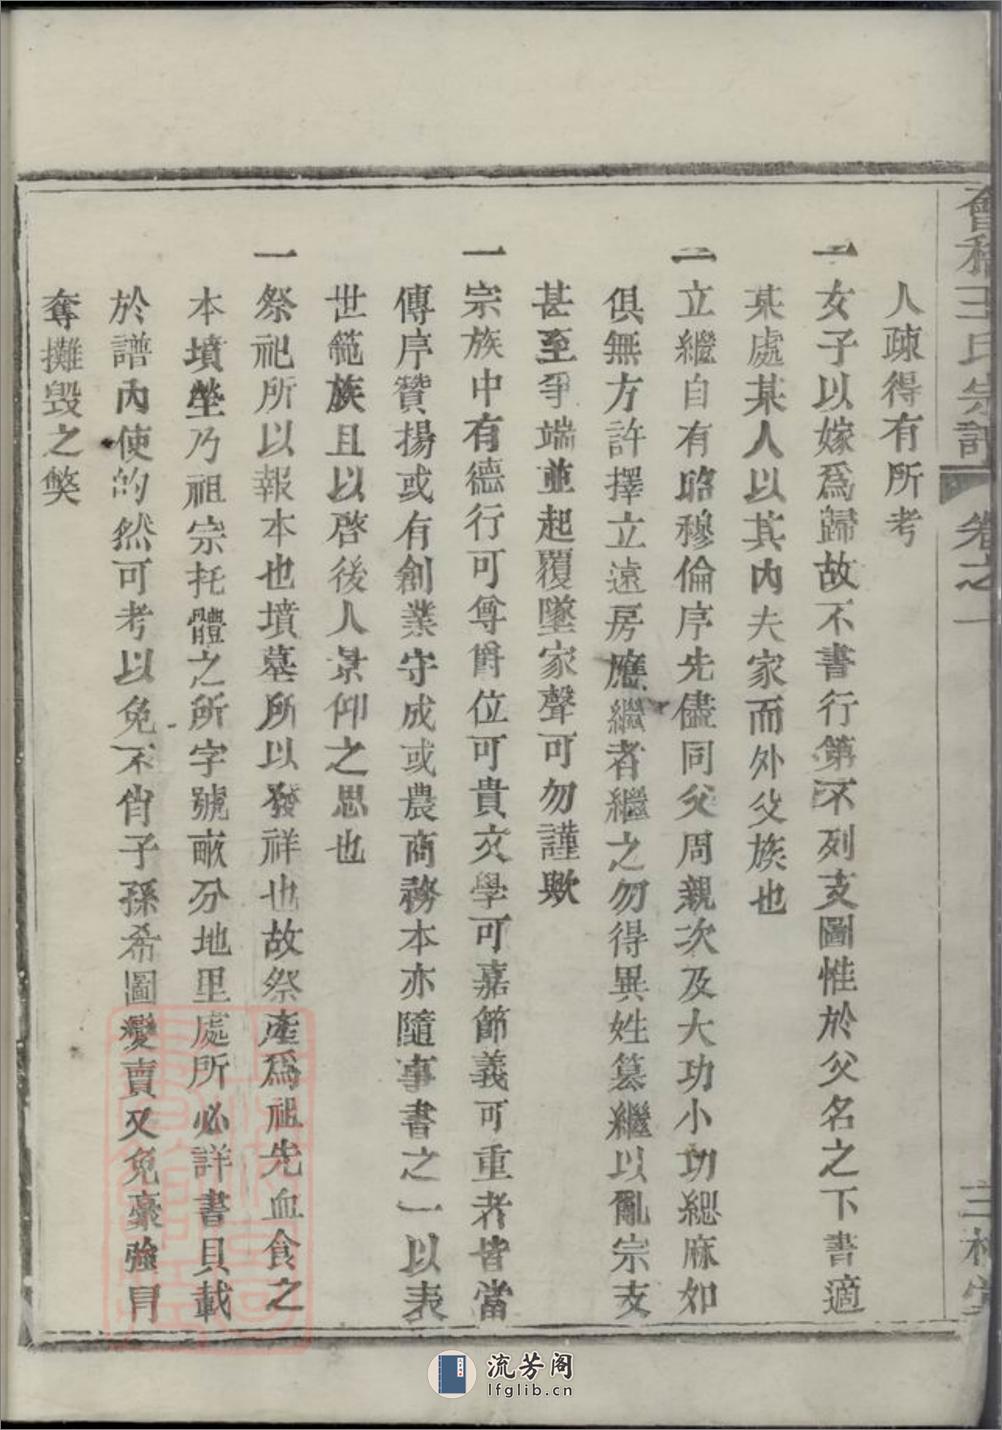 會稽王氏宗譜 卷之一 三槐堂
人疎得有所考
一女子以嫁爲歸故不書行第不列支圖惟於父名之下書適
某處某人以其內夫家而外父族也
一立繼自有昭穆倫序先儘同父周親次及大功小功緦麻如
俱無方許擇立遠房應繼者繼之勿得異姓篡繼以亂宗支
甚至爭端並起覆墜家聲可勿謹歟
一宗族中有德行可尊爵位可貴文學可嘉節義可重者皆當
傳序贊揚或有創業守成或農商務本亦隨事書之一以表
世範族且以啓後人景仰之思也
一祭祀所以報本也墳墓所以發祥也故祭產爲祖先血食之
本墳塋乃祖宗托體之所字號畝分地里處所必詳書具載
於譜內使的然可考以免不肖子孫希圖變賣又免豪強冐
奪攤毀之獘
流芳阁
lfglib.cn